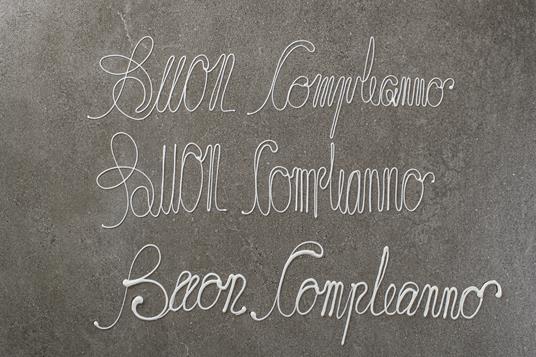 Buon Compleanno
Buon Compleanno
Buon Compleanno